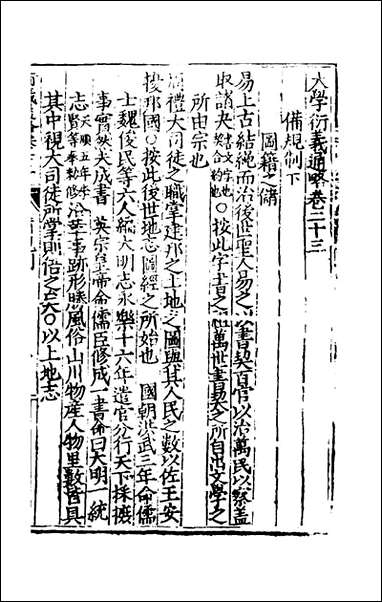 大學衍義通略卷二十三
備規制下
圖籍之儲
易上古結繩而治後世聖人易之以書契百官以治萬民以察蓋
取諸夬○按此字書之祖萬世書契之所自始文學之
所由宗也
周禮大司徒之職掌建邦之土地之圖與其人民之數以佐王安
擾邦國○按此後世地志圖經之所始也 國朝洪武三年命儒
士魏俊民等六人編大明志永樂十六年遣官分行天下採摭
事實然未成書 英宗皇帝命儒臣修成一書命曰大明一統
志天順五年李賢等奉勑修沿革事跡形勝風俗山川物産人物里數皆具
其中視大司徒所掌則俗之尤大○以上地志